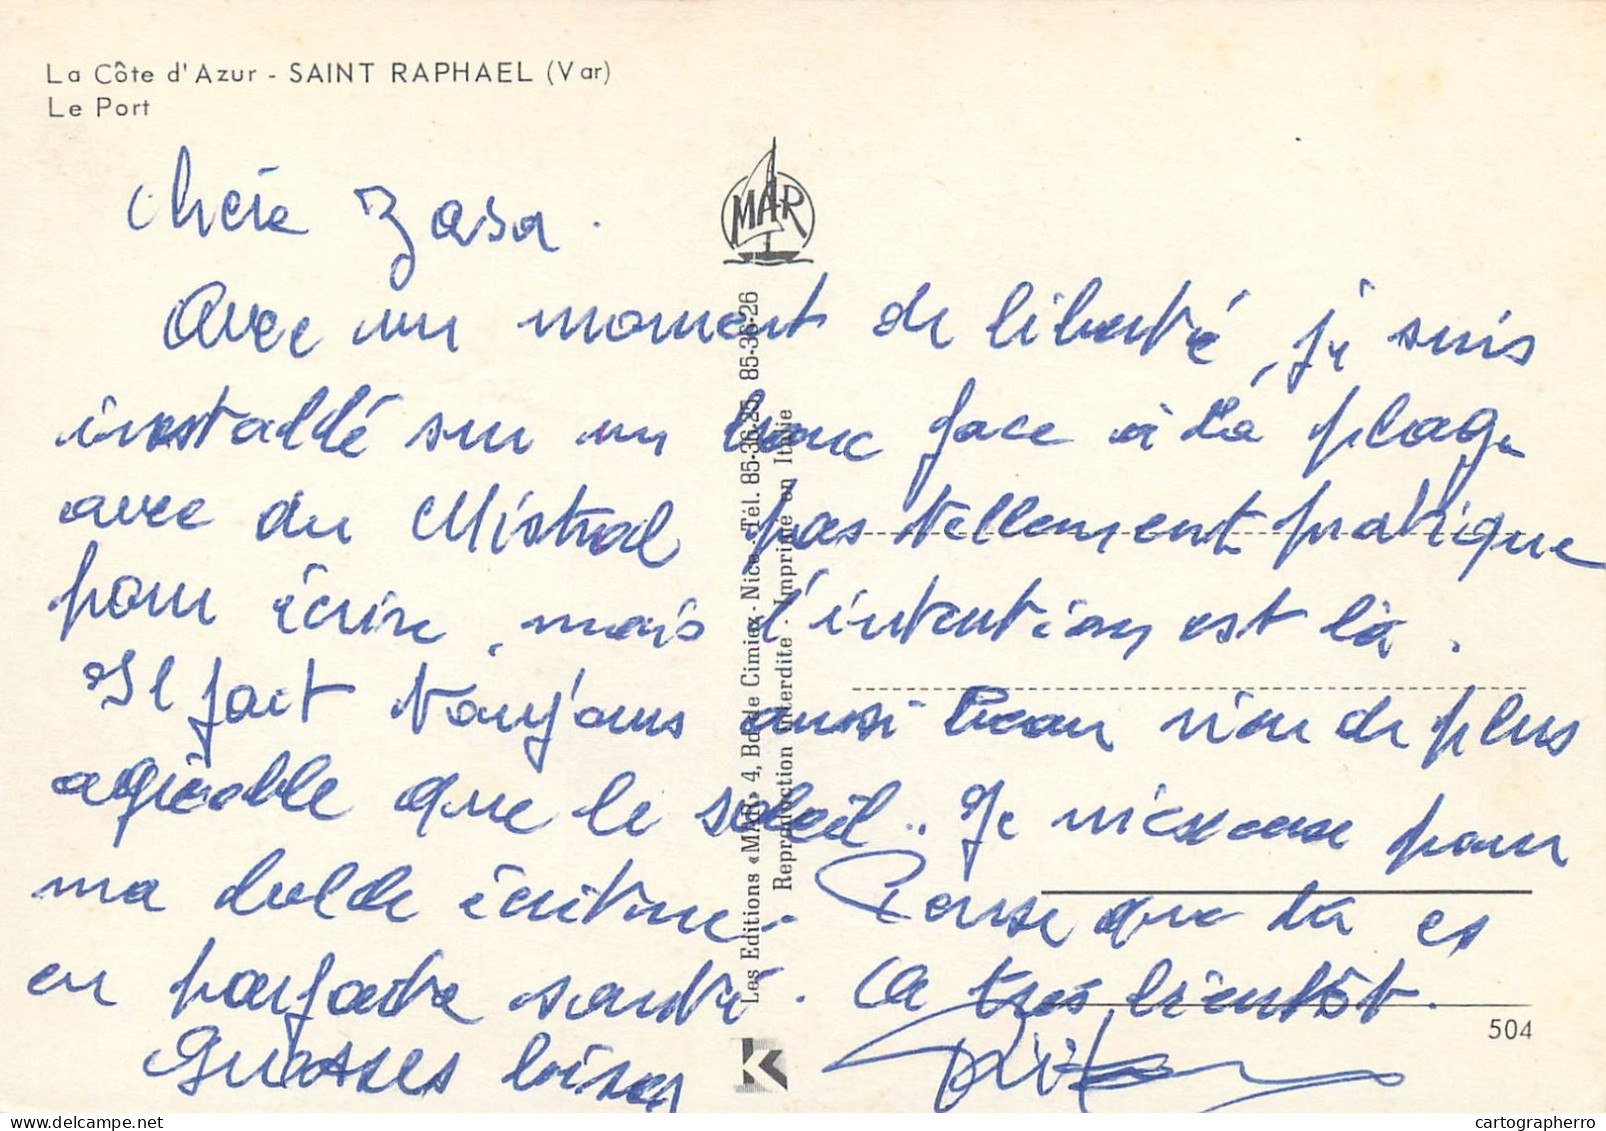 La Côte d'Azur - SAINT RAPHAEL (Var)
Le Port
MAR
Chère Zasa.
Avec un moment de liberté, je suis
installé sur un banc face à la plage
avec du Mistral pas tellement pratique
pour écrire, mais l'intention est là.
Il fait toujours aussi beau rien de plus
agréable que le soleil.. Je m'excuse pour
ma drôle écriture. Pense que tu es
en parfaite santé. A très bientôt.
Grosses bises
Les Editions «MAR» 4, Bd de Cimiez - Nice - Tél. 85-36-25 85-36-26
Reproduction interdite - Imprimé en Italie
K
504
cartographerro